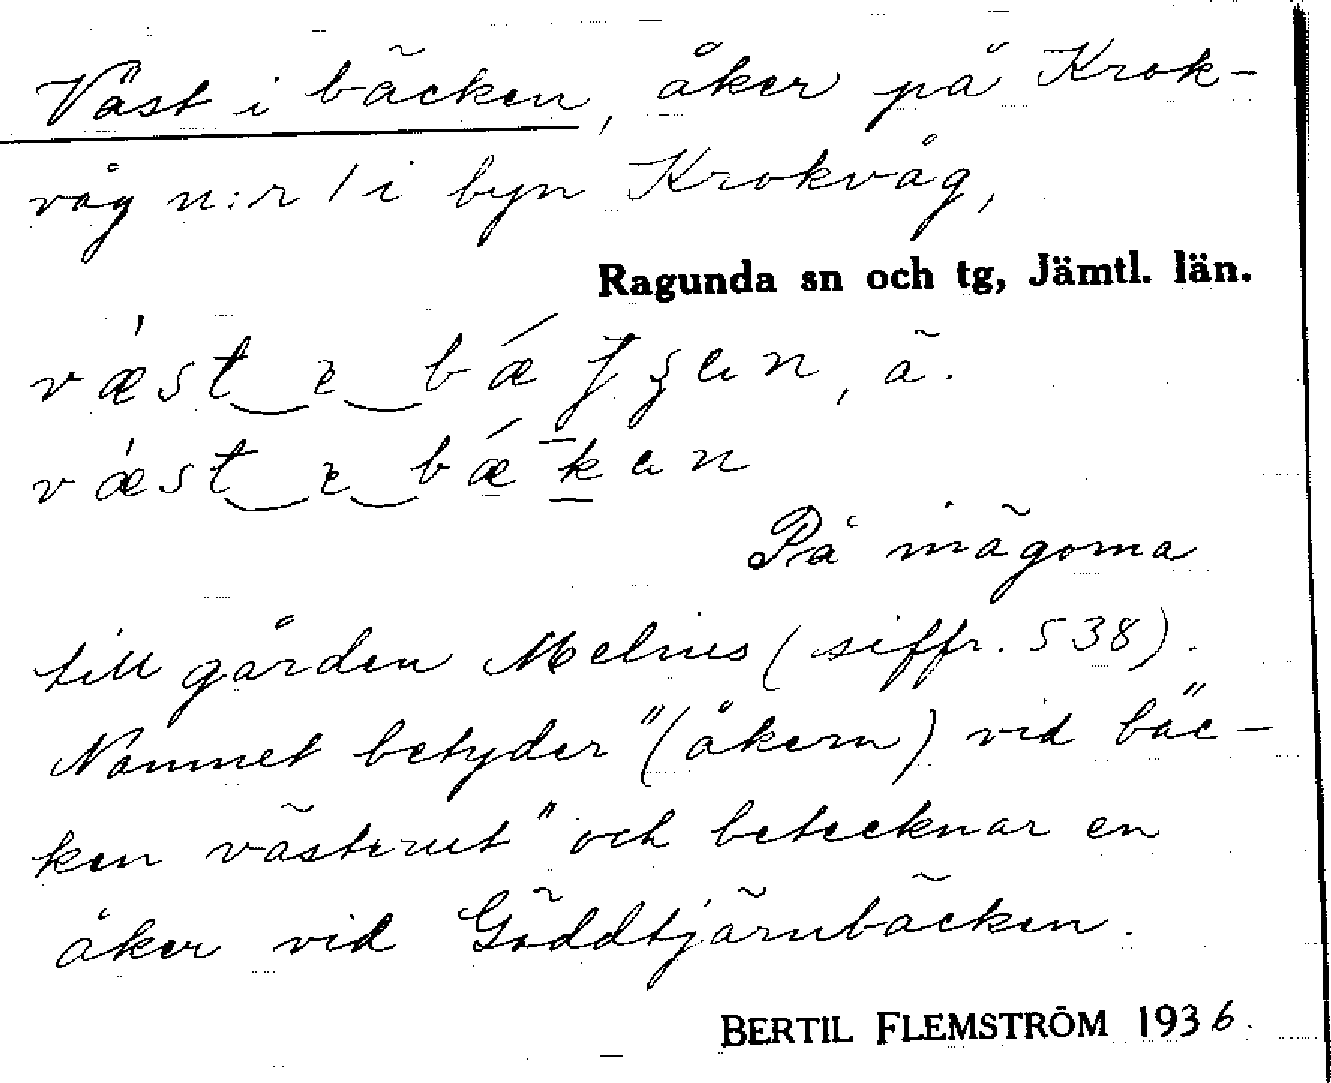 Väst i bäcken, åker på Krok-
våg n:r 1 i byn Krokvåg,
Ragunda sn och tg, Jämtl. län.
væst e bæ en, ā.
væst e bæken
På inägorna
till gården Melnes (siffr. 538).
Namnet betyder "(åkern) vid bäc-
ken västerut" och betecknar en
åker vid Gäddtjärnbäcken.
BERTIL FLEMSTRÖM 1936.